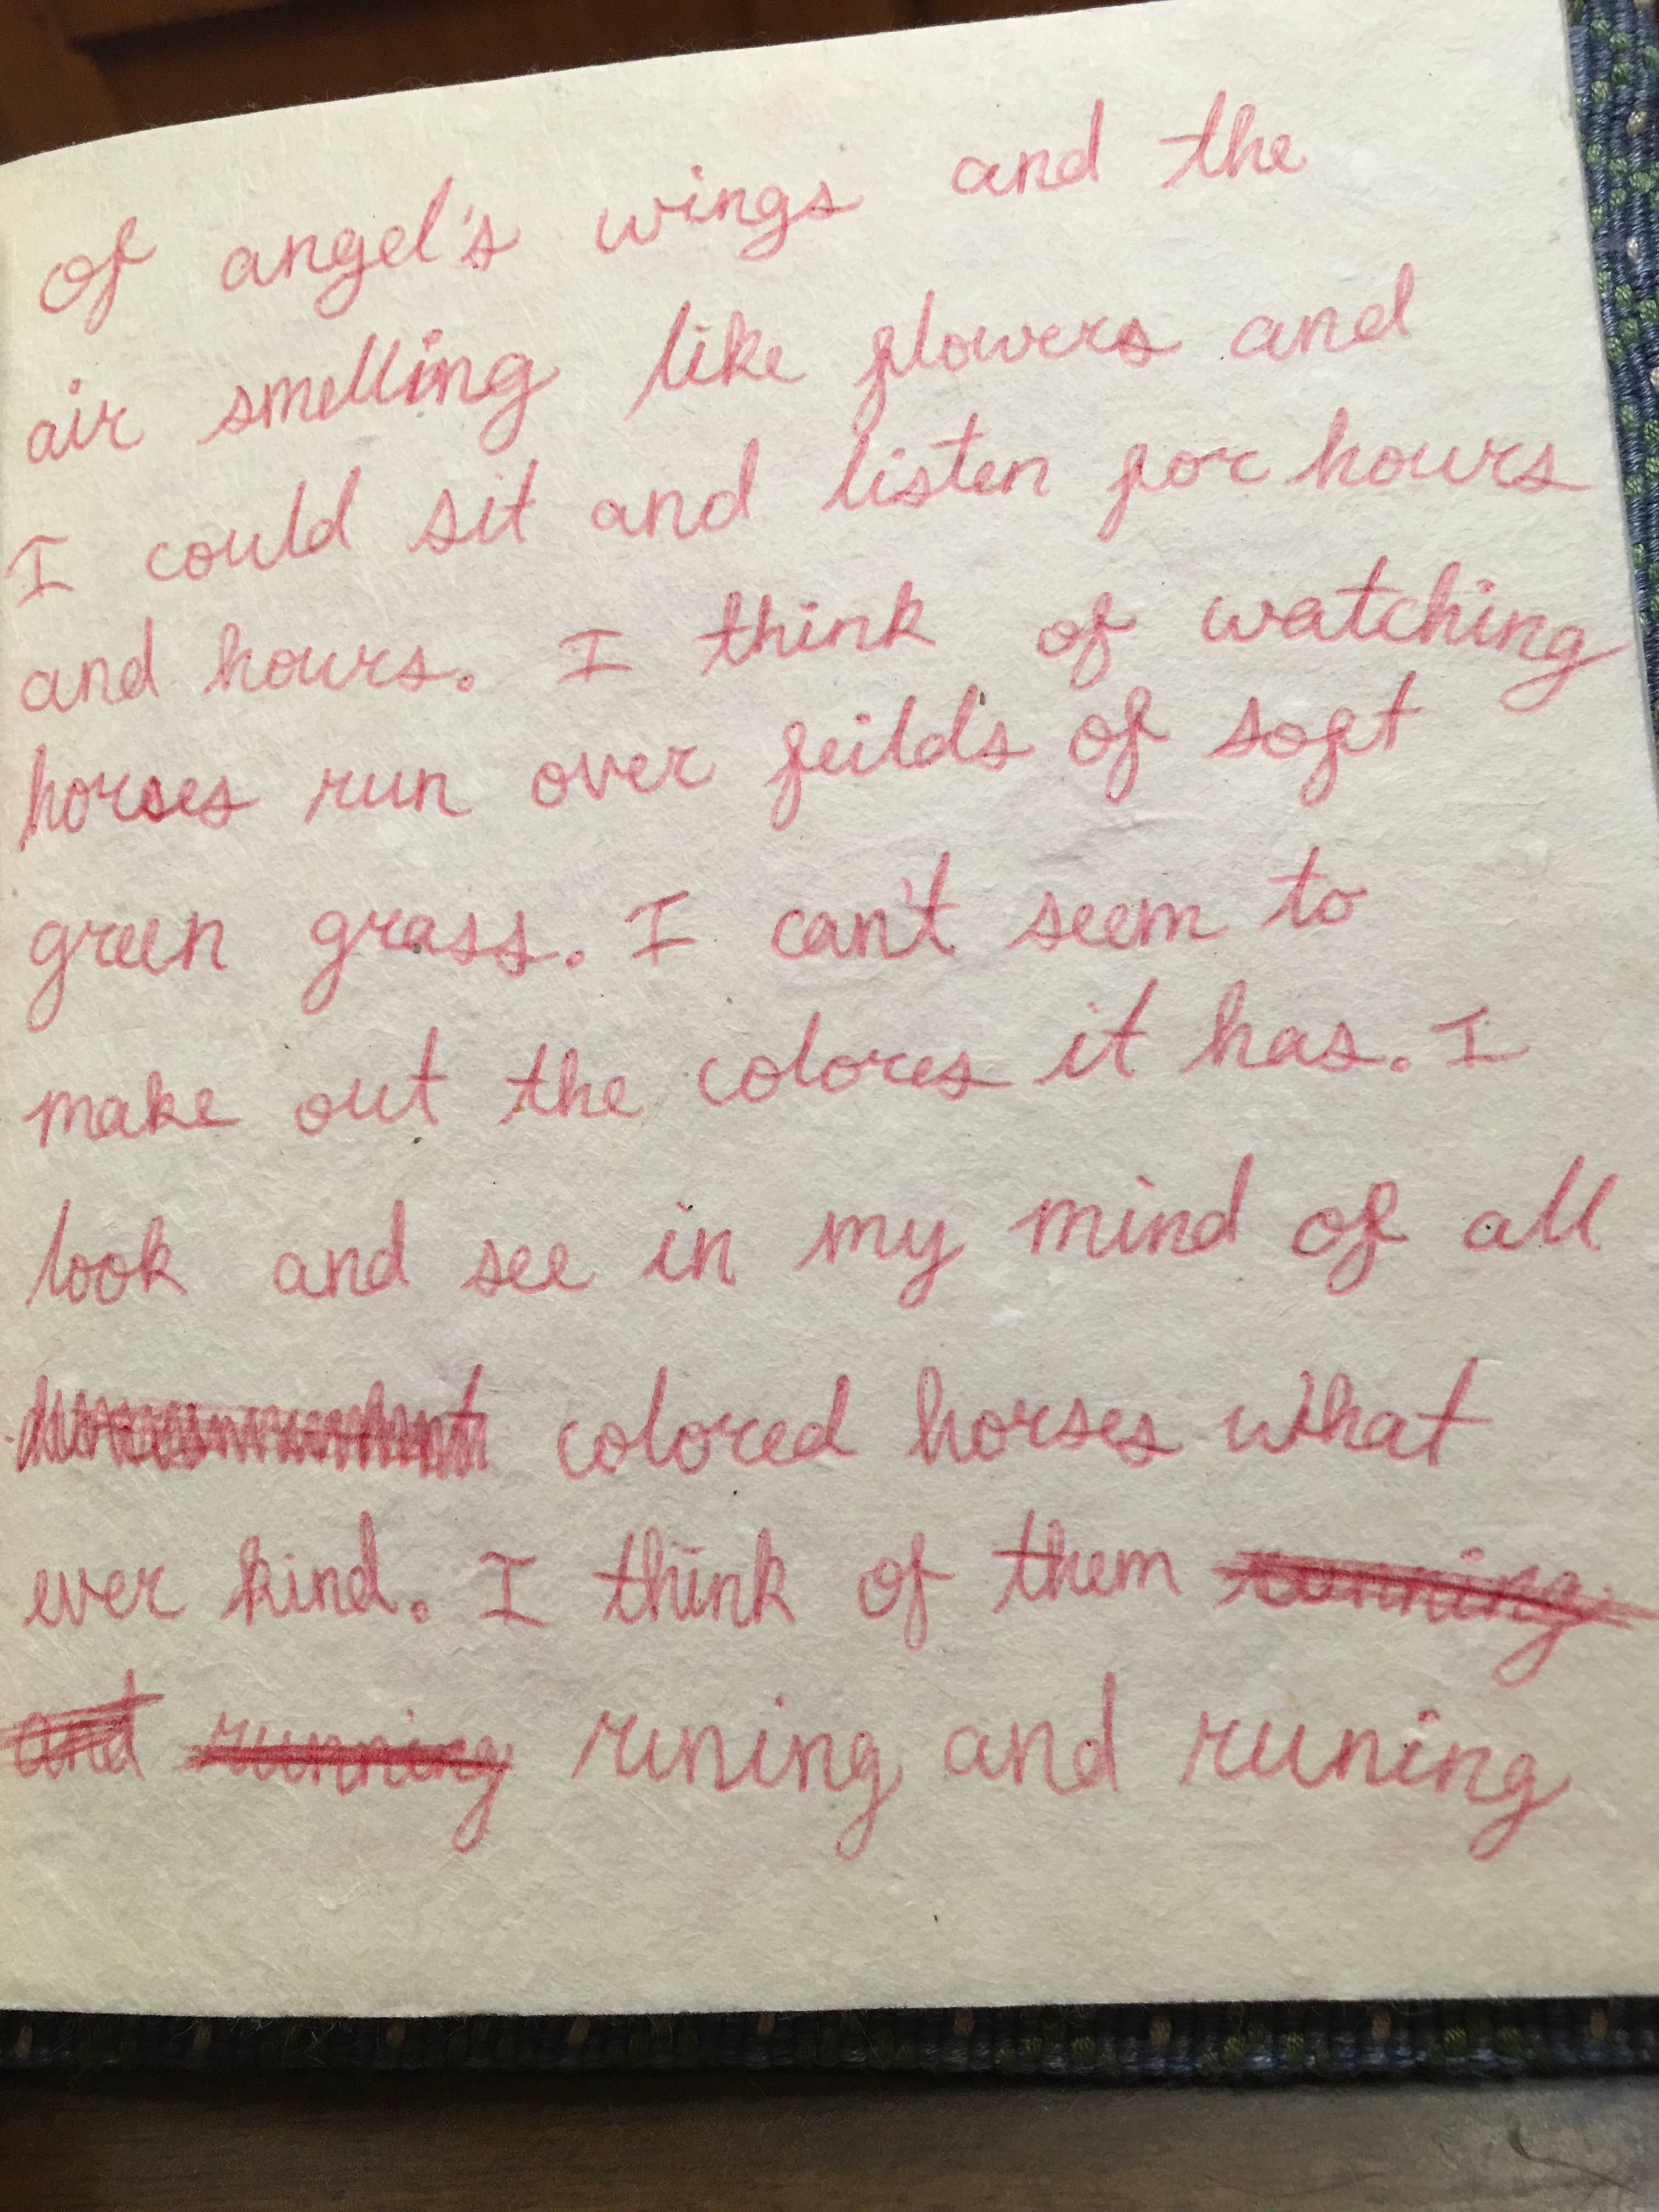 of angel's wings and the
air smelling like flowers and
I could sit and listen for hours
and hours. I think of watching
horses run over feilds of soft
green grass. I can't seem to
make out the colores it has. I
look and see in my mind of all
colored horses what
ever kind. I think of them running
and running runing and runing